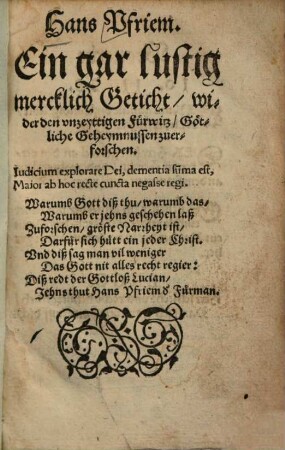 Hans Pfriem.
Ein gar lustig
mercklich Geticht / wi-
der den vnzeyttigen Fürwitz / Göt-
liche Geheymnussen zuer-
forschen.
Iudicium explorare Dei, dementia sũma est,
Maior ab hoc recte cuncta negasse regi.
Warumb Gott diß thu / warumb das-
Warumb er jehns geschehen laß
Zuforschen / gröste Narrheyt ist /
Darfür sich hütt ein jeder Christ.
Vnd diß sag man vil weniger
Das Gott nit alles recht regier:
Diß redt der Gottloß Lucian /
Jehns thut Hans Pfriem d̕ Fürman.